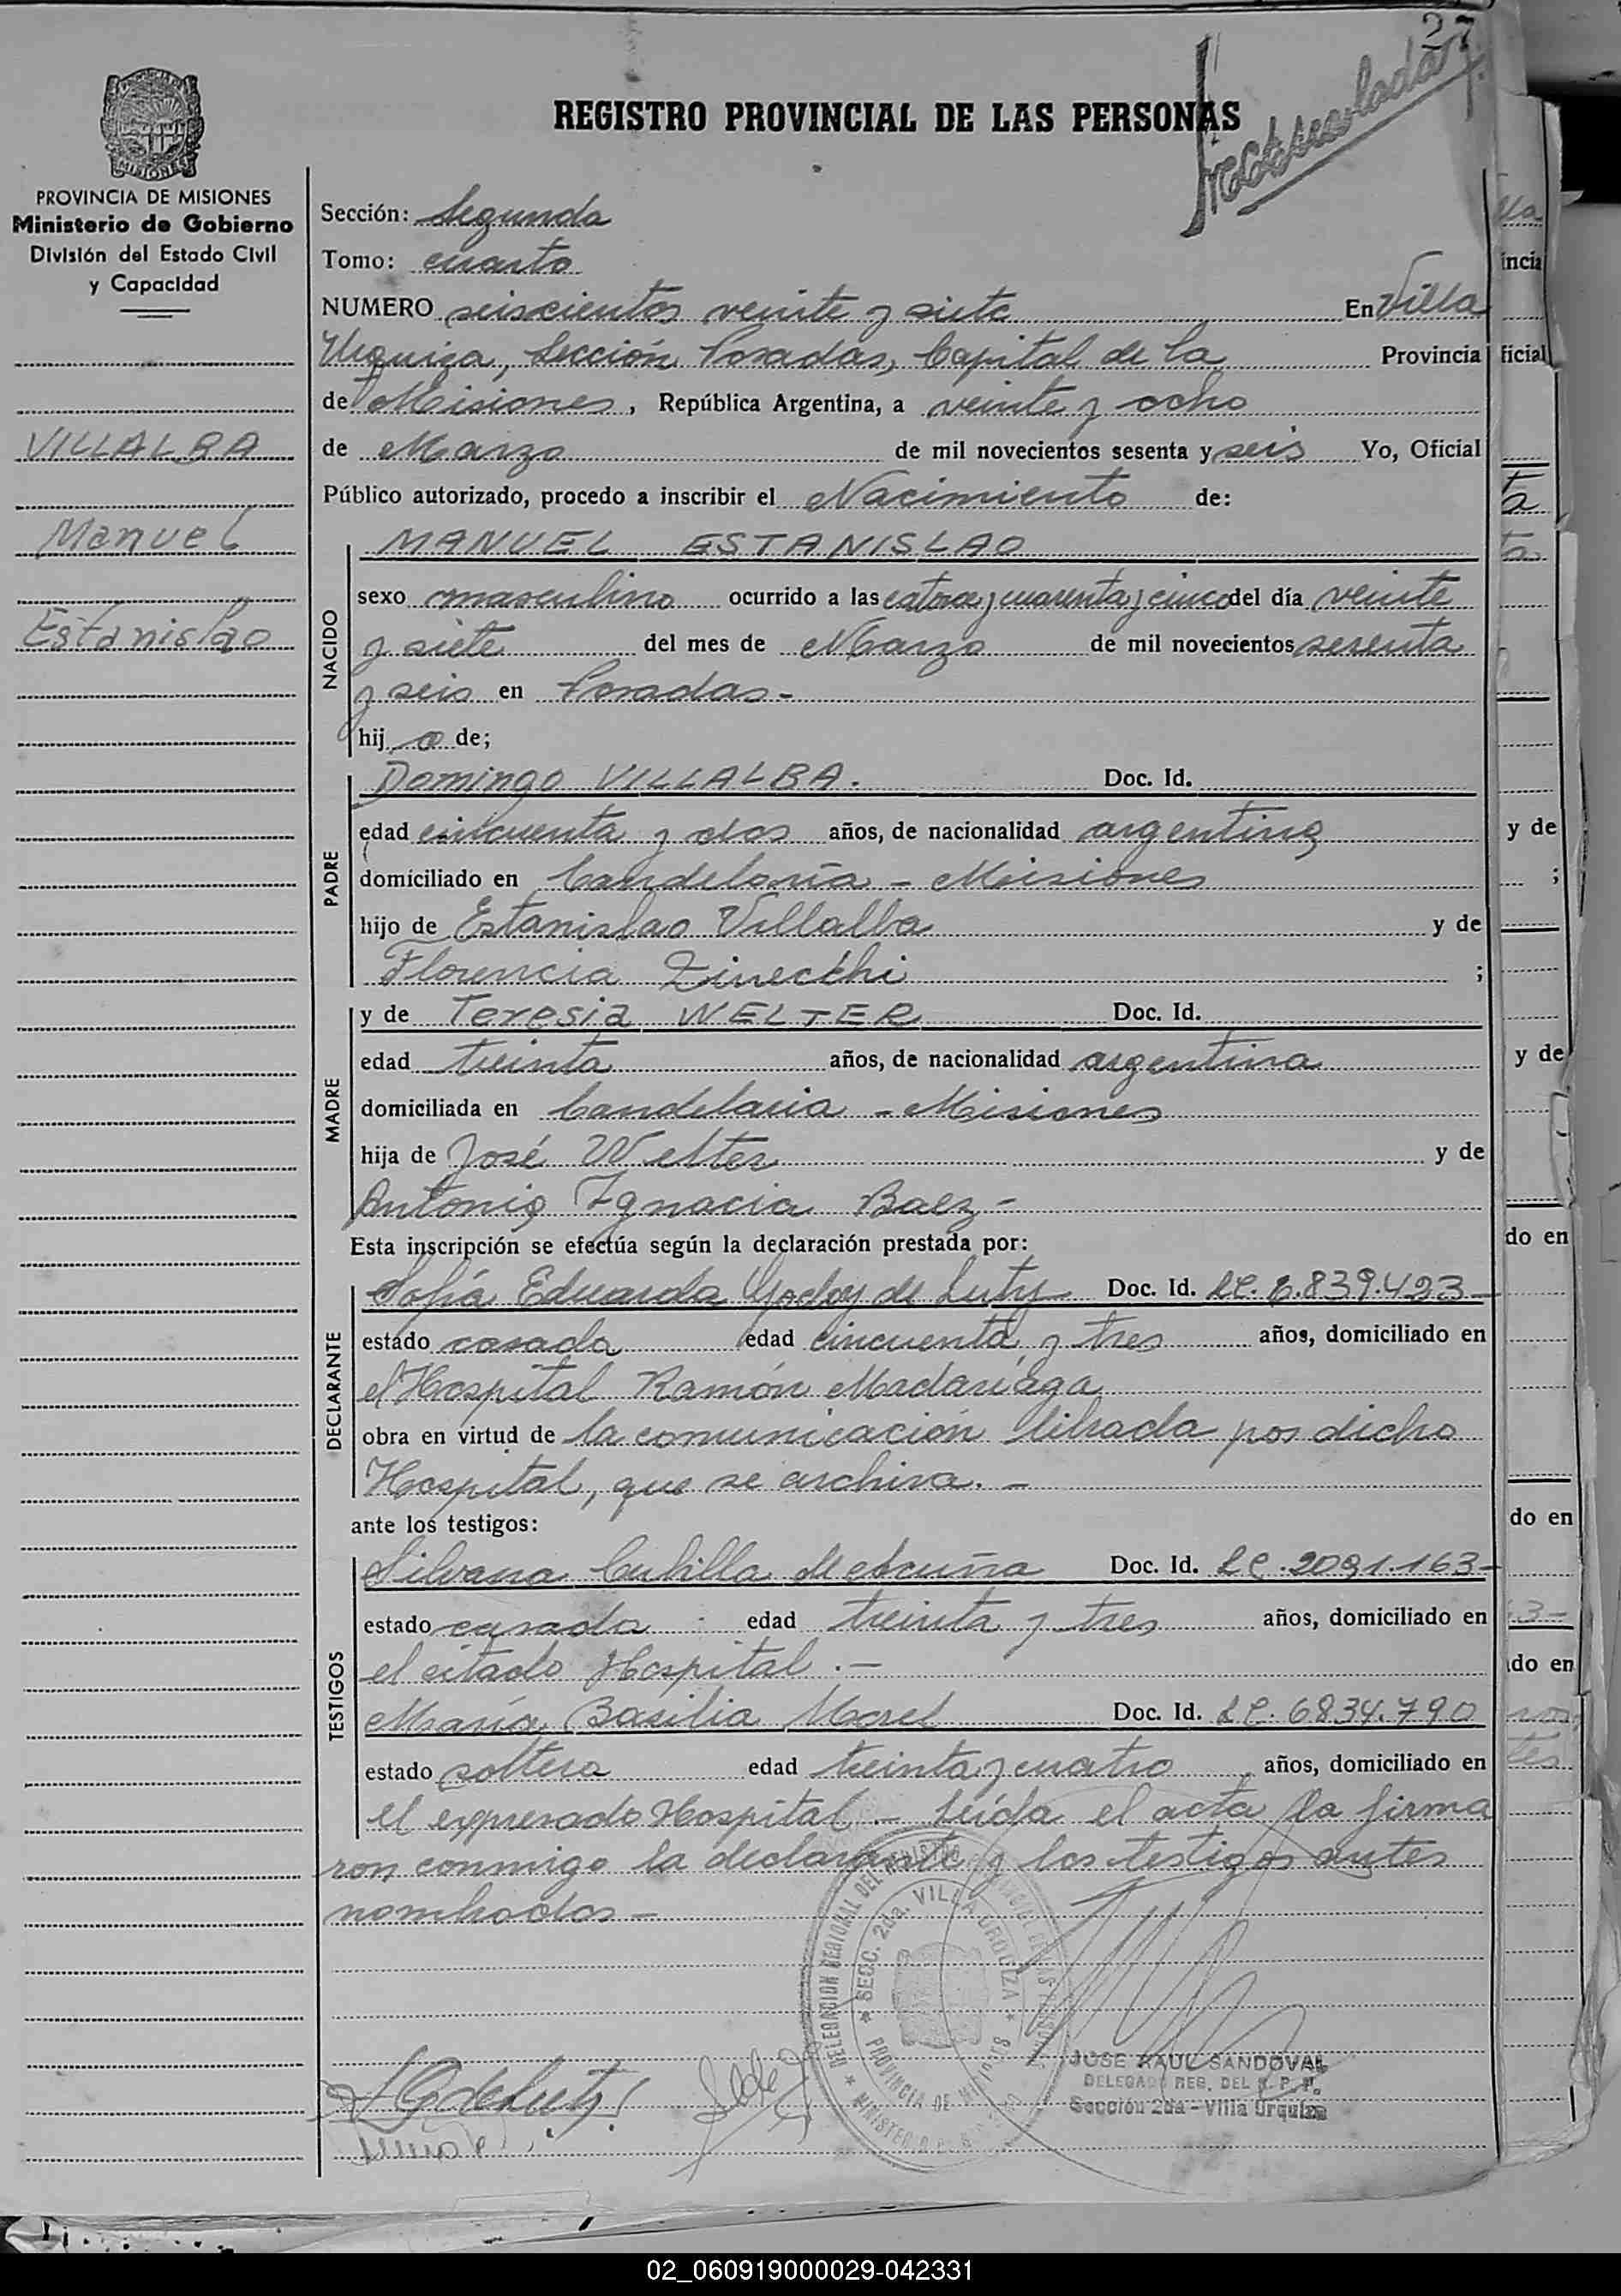 27
REGISTRO PROVINCIAL DE LAS PERSONAS
PROVINCIA DE MISIONES
Ministerio de Gobierno
División del Estado Civil
y Capacidad
VILLALBA
Manuel
Estanislao
Sección: Segunda
Tomo: cuarto
NUMERO seiscientos veinte y siete En Villa
Urquiza, Sección Posadas, Capital de la Provincia
de Misiones, República Argentina, a veinte y ocho
de Marzo de mil novecientos sesenta y seis Yo, Oficial
Público autorizado, procedo a inscribir el Nacimiento de:
NACIDO
MANUEL ESTANISLAO
sexo masculino ocurrido a las catorce y cuarenta y cinco del día veinte
y siete del mes de Marzo de mil novecientos sesenta
y seis en Posadas.-
hij o de;
PADRE
Domingo VILLALBA. Doc. Id.
edad cincuenta y dos años, de nacionalidad argentina
domiciliado en Candelaria - Misiones
hijo de Estanislao Villalba y de
Florencia ;
MADRE
y de Teresia WELTER Doc. Id.
edad treinta años, de nacionalidad argentina
domiciliada en Candelaria - Misiones
hija de José Welter y de
Antonia Ignacia Baez -
Esta inscripción se efectúa según la declaración prestada por:
DECLARANTE
Sofía Eduarda Godoy de Luty Doc. Id. LC. 6.839.423-
estado casada edad cincuenta y tres años, domiciliado en
el Hospital Ramón Madariaga
obra en virtud de la comunicación librada por dicho
Hospital, que se archiva. -
ante los testigos:
TESTIGOS
Silvana de Acuña Doc. Id. LC. 2091.163-
estado casada edad treinta y tres años, domiciliado en
el citado Hospital. -
María Basilia Morel Doc. Id. LC. 6834.790
estado soltera edad treinta y cuatro años, domiciliado en
el expresado Hospital. - Leída el acta la firma
ron conmigo la declarante y los testigos antes
nombrados -
SECC. 2da. VILLA URQUIZA
PROVINCIA DE MISIONES
JOSE RAUL SANDOVAL
DELEGADO REG. DEL R. P. P.
Sección 2da - Villa Urquiza
02_060919000029-042331